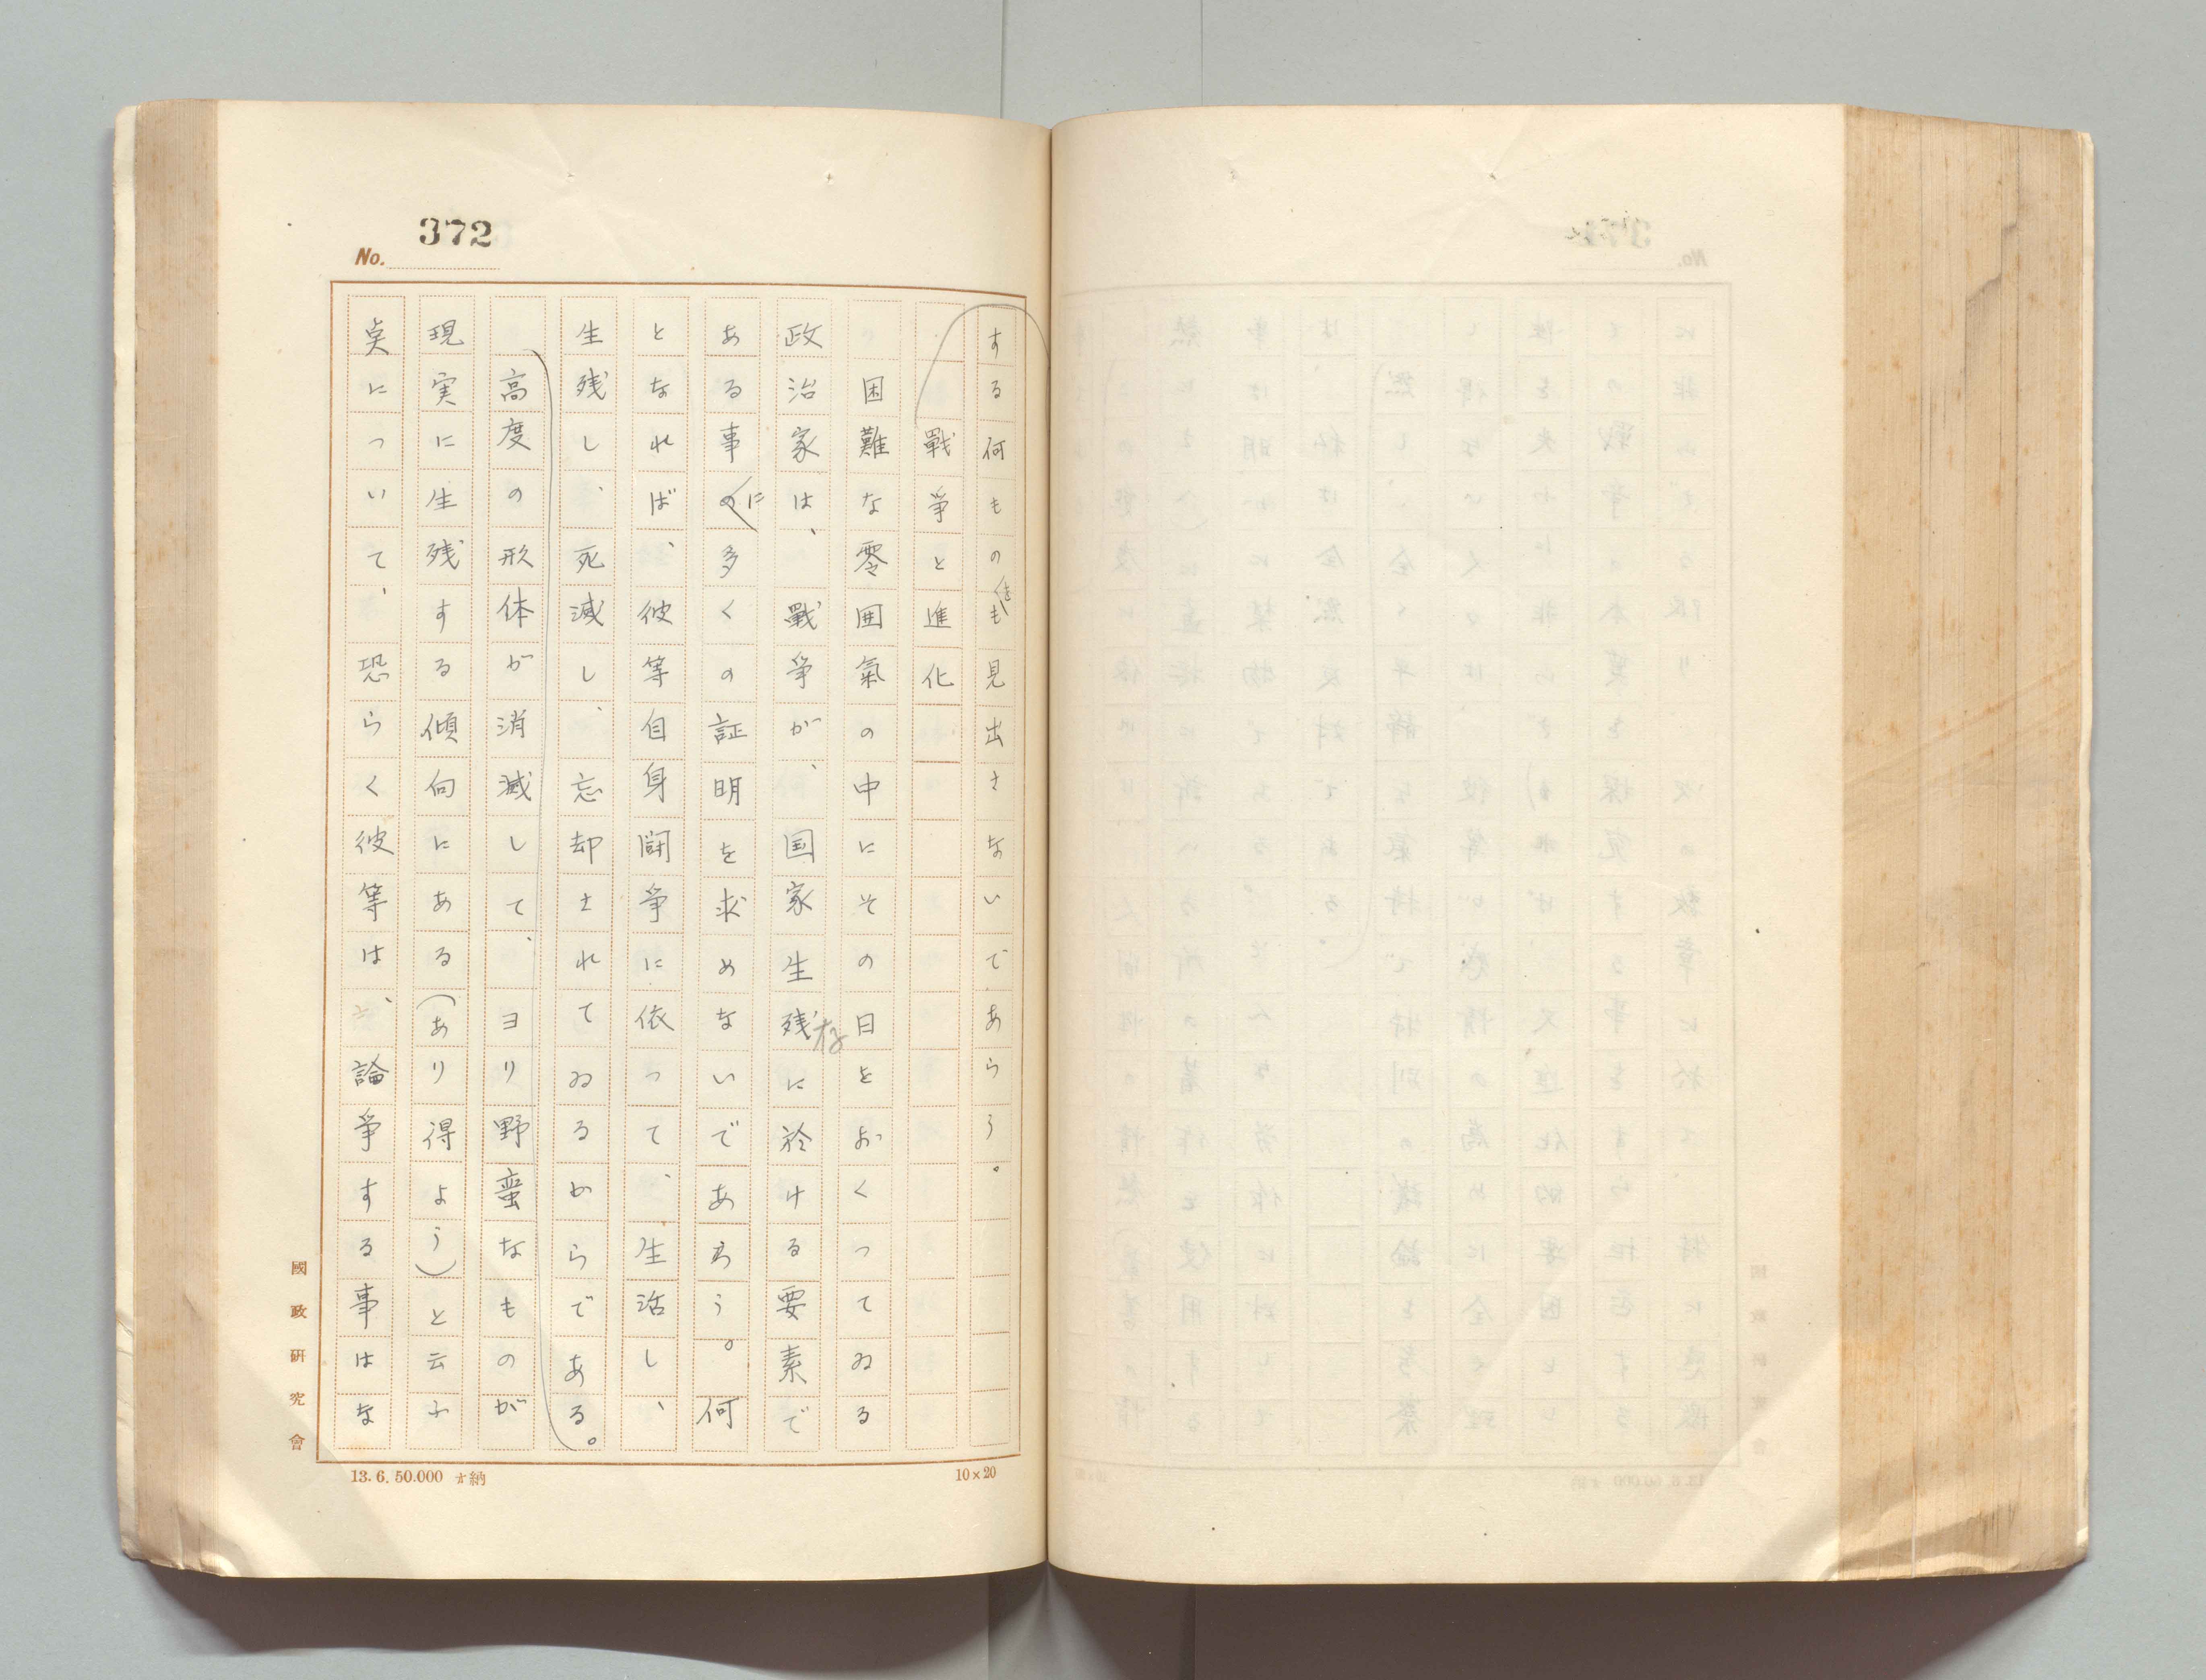 372
No.
する何ものをも見出さないであらう。
戰爭と進化
困難な雰囲氣の中にその日をおくつてゐる
政治家は、戰爭が、国家生残存に於ける要素で
ある事のに多くの証明を求めないであらう。何
となれば、彼等自身闘爭に依つて、生活し、
生残し、死滅し、忘却されてゐるからである。
高度の形体が消滅して、ヨリ野蛮なものが
現実に生残する傾向にある(あり得よう)と云ふ
点について、恐らく彼等は、論爭する事はな
國政研究會
13. 6. 50.000 納
10×20